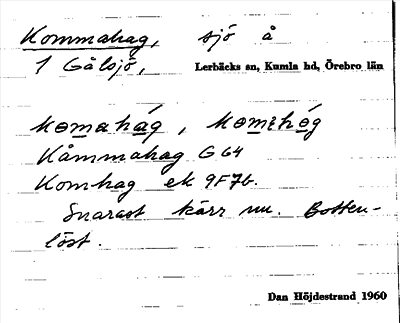 Kommahag, sjö å
1 Gålsjö, Lerbäcks sn, Kumla hd, Örebro län
komahág, komẹhóg
Kåmmahag G64
Komhag ek 9F7b.
Snarast kärr nu. Botten-
löst.
Dan Höjdestrand 1960